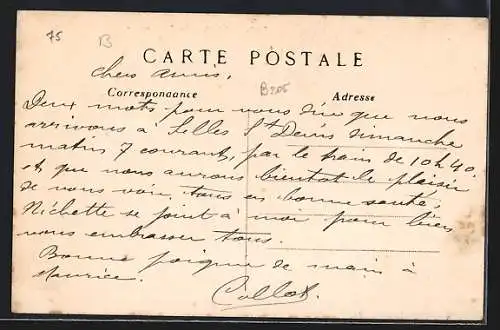 75
B
CARTE POSTALE
Chers amis,
B205
Correspondance
Adresse
Deux mots pour vous dire que nous
arrivons à Selles St Denis dimanche
matin 7 courant, par le train de 10h40.
et que nous aurons bientôt le plaisir
de vous voir tous en bonne santé,
Nichette se joint à moi pour bien
vous embrasser tous.
Bonne poignée de main à
Maurice.
Collot.